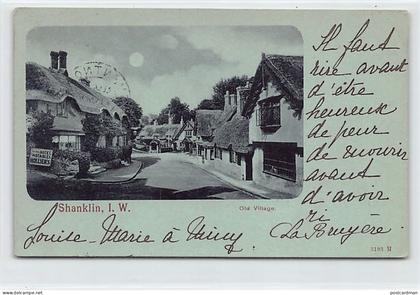 Il faut
rire avant
d'être
heureux
de peur
de mourir
avant
d'avoir
ri
La Bruyère
Shanklin, I. W.
Old Village.
Louise-Marie à Mimy
3193 M
postcardman.com